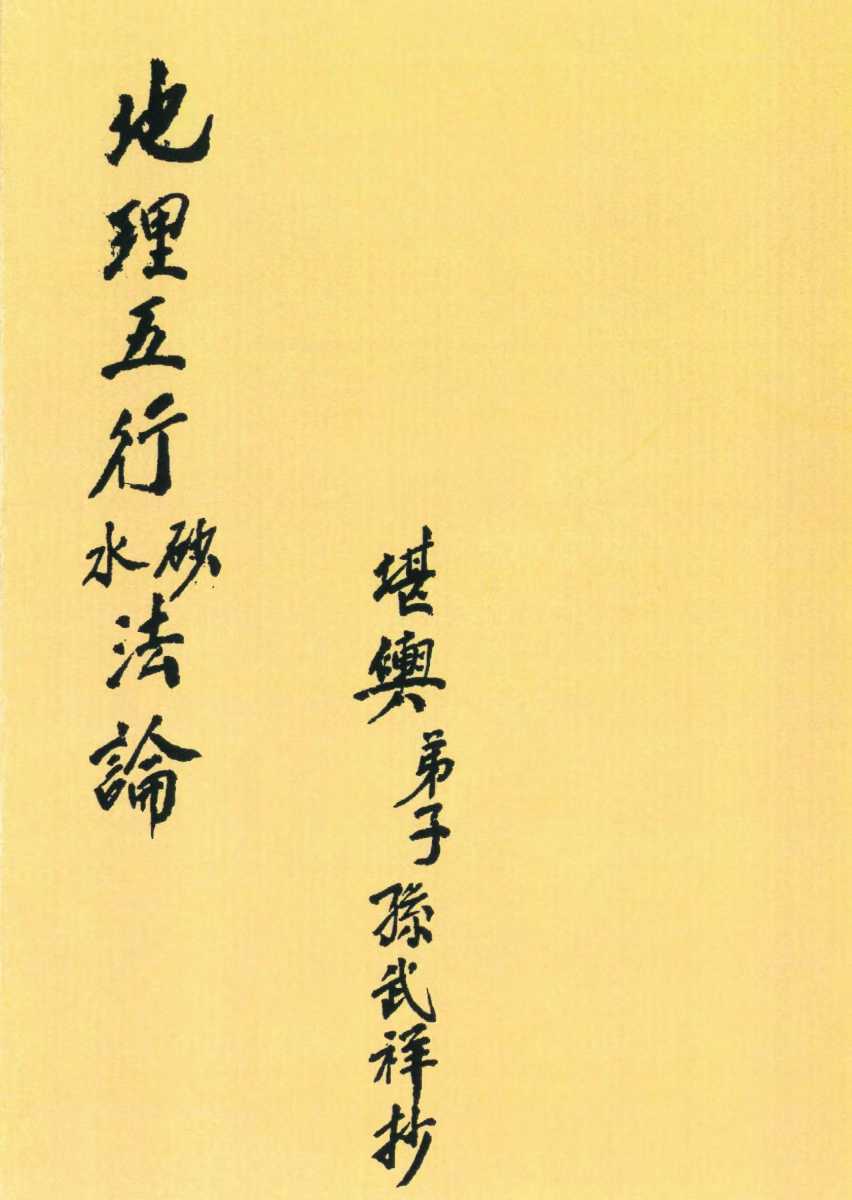 地理五行砂水法論
堪輿弟子孫武祥抄